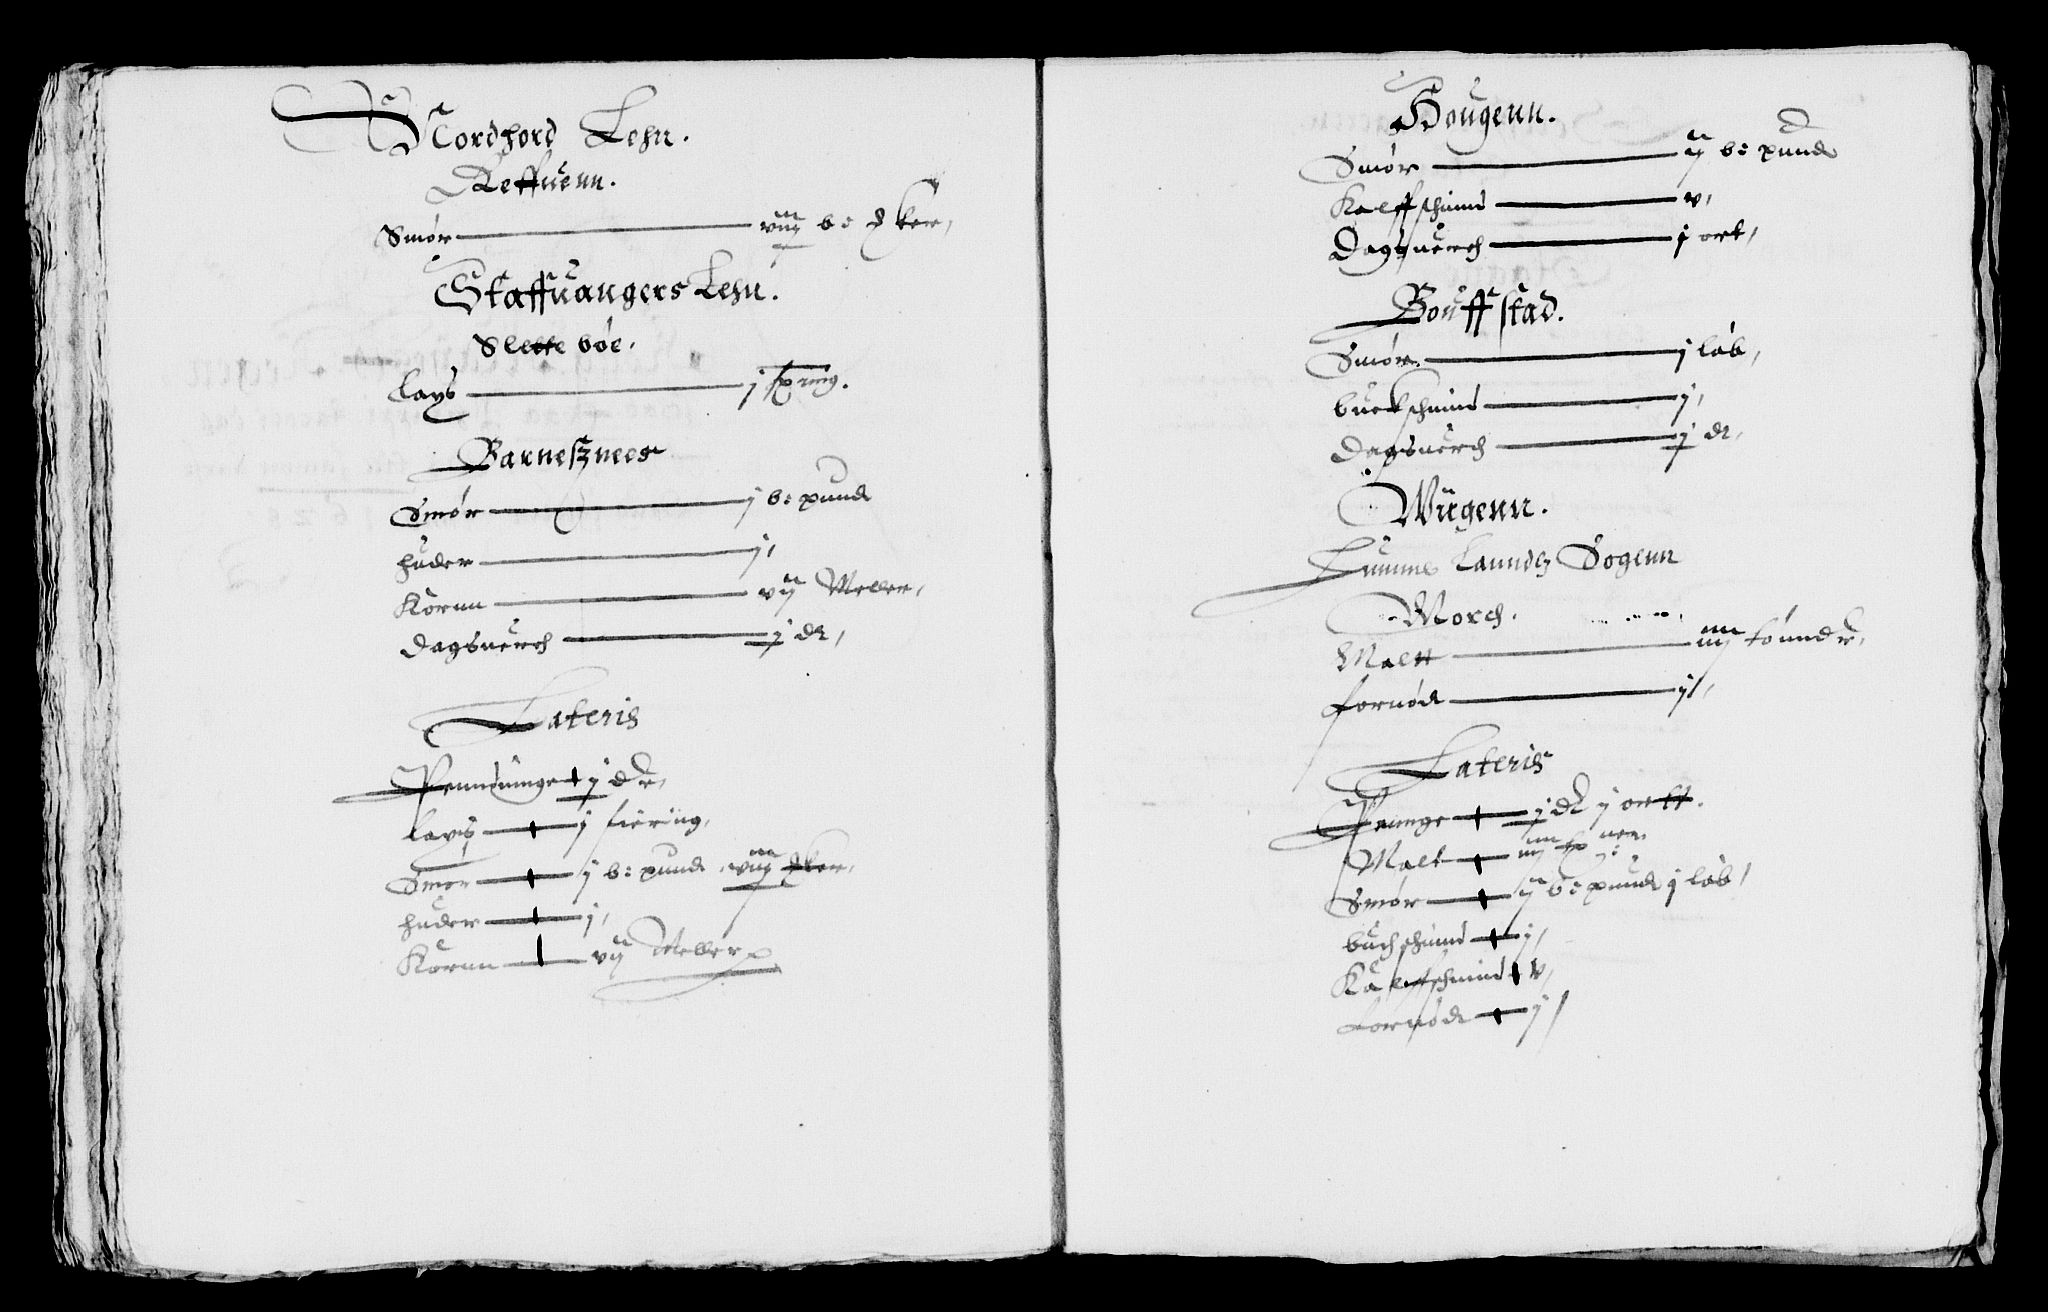 Nordhord Lehn.
Reffuenn.
Smør — viij b: mker,
Staffuangers Lehn.
Slettebøe.
Lays — j fiering.
Barnesznees
Smør — j b: pund
huder — j,
Kornn — vij Meller,
Dagsuerch — j dr,
Lateris
Pennduinge — j dr,
Lays — j fiering,
Smør — j b: pund, viij mker,
huder — j,
Kornn — vij Meller
Hougenn.
Smør — ij b: pund
Kalffschind — v,
Dagsuerch — j ort,
Bouffstad.
Smør — j løb,
buckschind — j,
Dagsuerch — j dr,
Wiigenn.
Laundz Sogenn
Morch.
Maltt — iiij tønder,
fornød — j,
Lateris
Pennge — j dr j ortt.
Malt — iiij
Smør — ij b: pund j løb,
buchschind — j,
Kalffschind — v,
fornød — j,